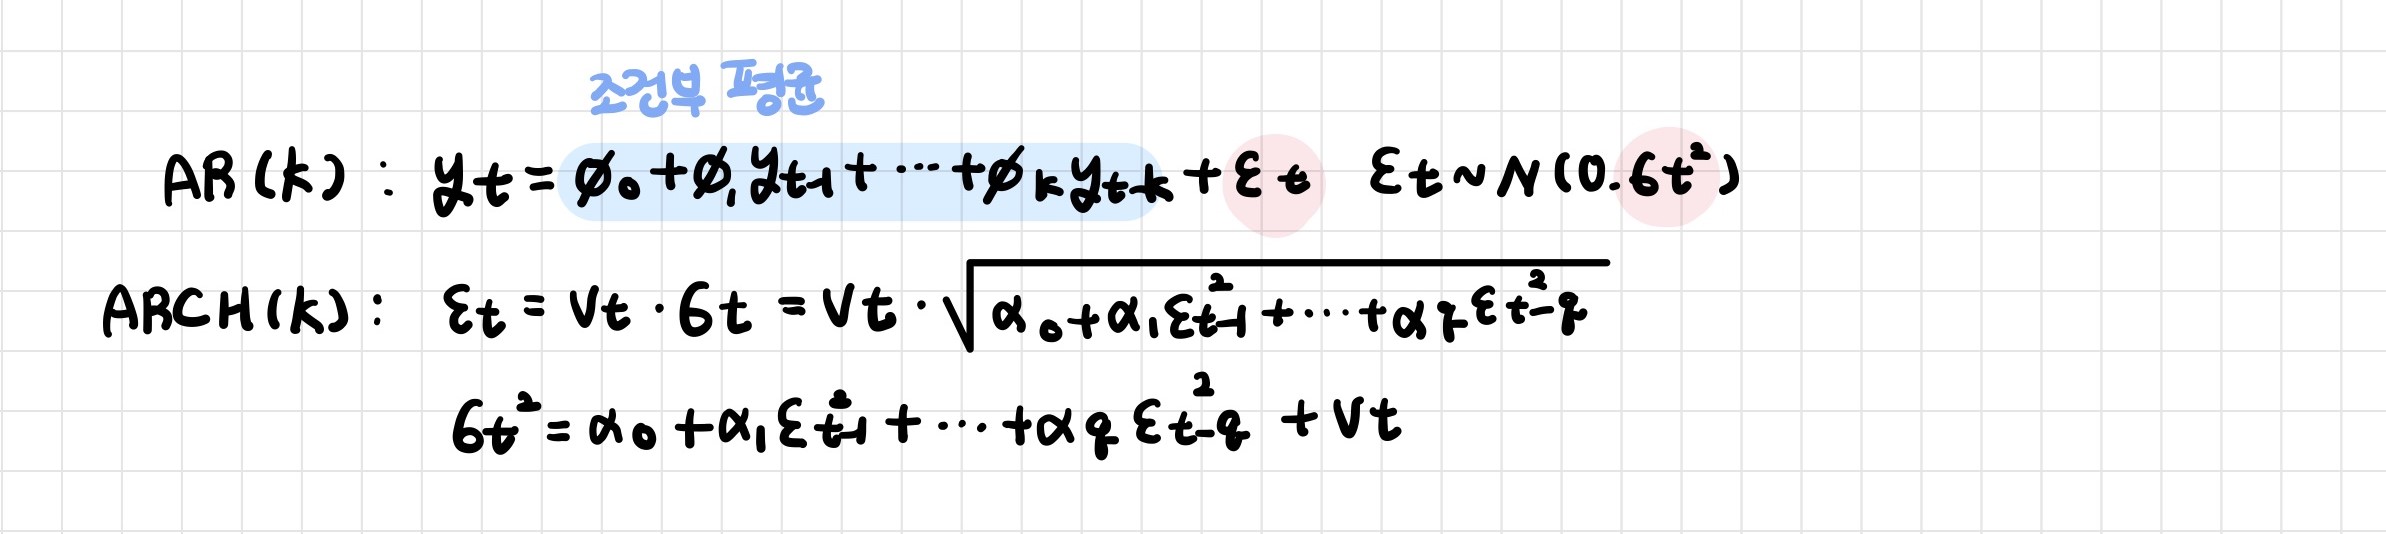 조건부 평균
AR(k) : yt = ø₀ + ø₁yt-1 + ··· + øₖyt-k + εt εt ~ N(0.6t²)
ARCH(k) : εt = Vt · 6t = Vt · √α₀ + α₁ε²t-1 + ··· + αqε²t-q
6t² = α₀ + α₁ε²t-1 + ··· + αqε²t-q + Vt